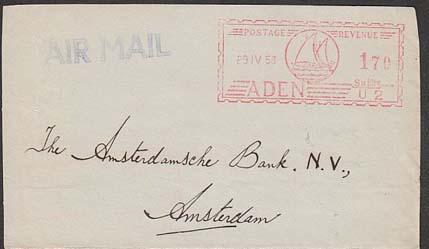 AIR MAIL
POSTAGE REVENUE
29 IV 53 170
ADEN
U 2
The Amsterdamsche Bank. N.V.,
Amsterdam